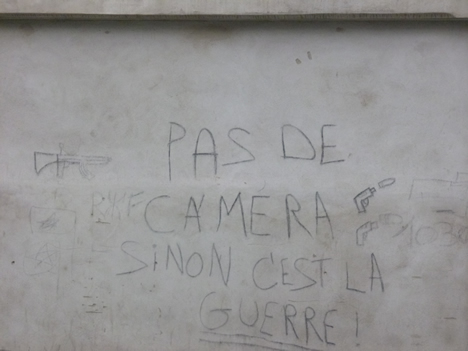 PAS DE
CAMÉRA
SINON C'EST LA
GUERRE !